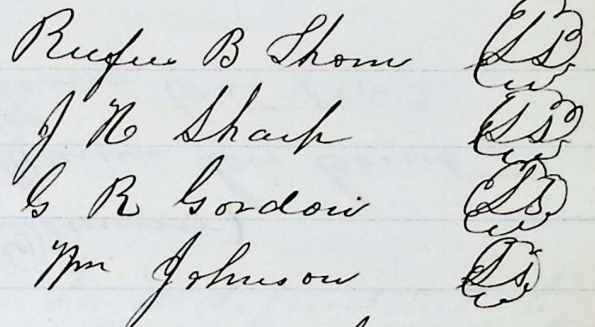 Rufus B Thom LS
J N Sharp LS
G R Gordon LS
Wm Johnson LS